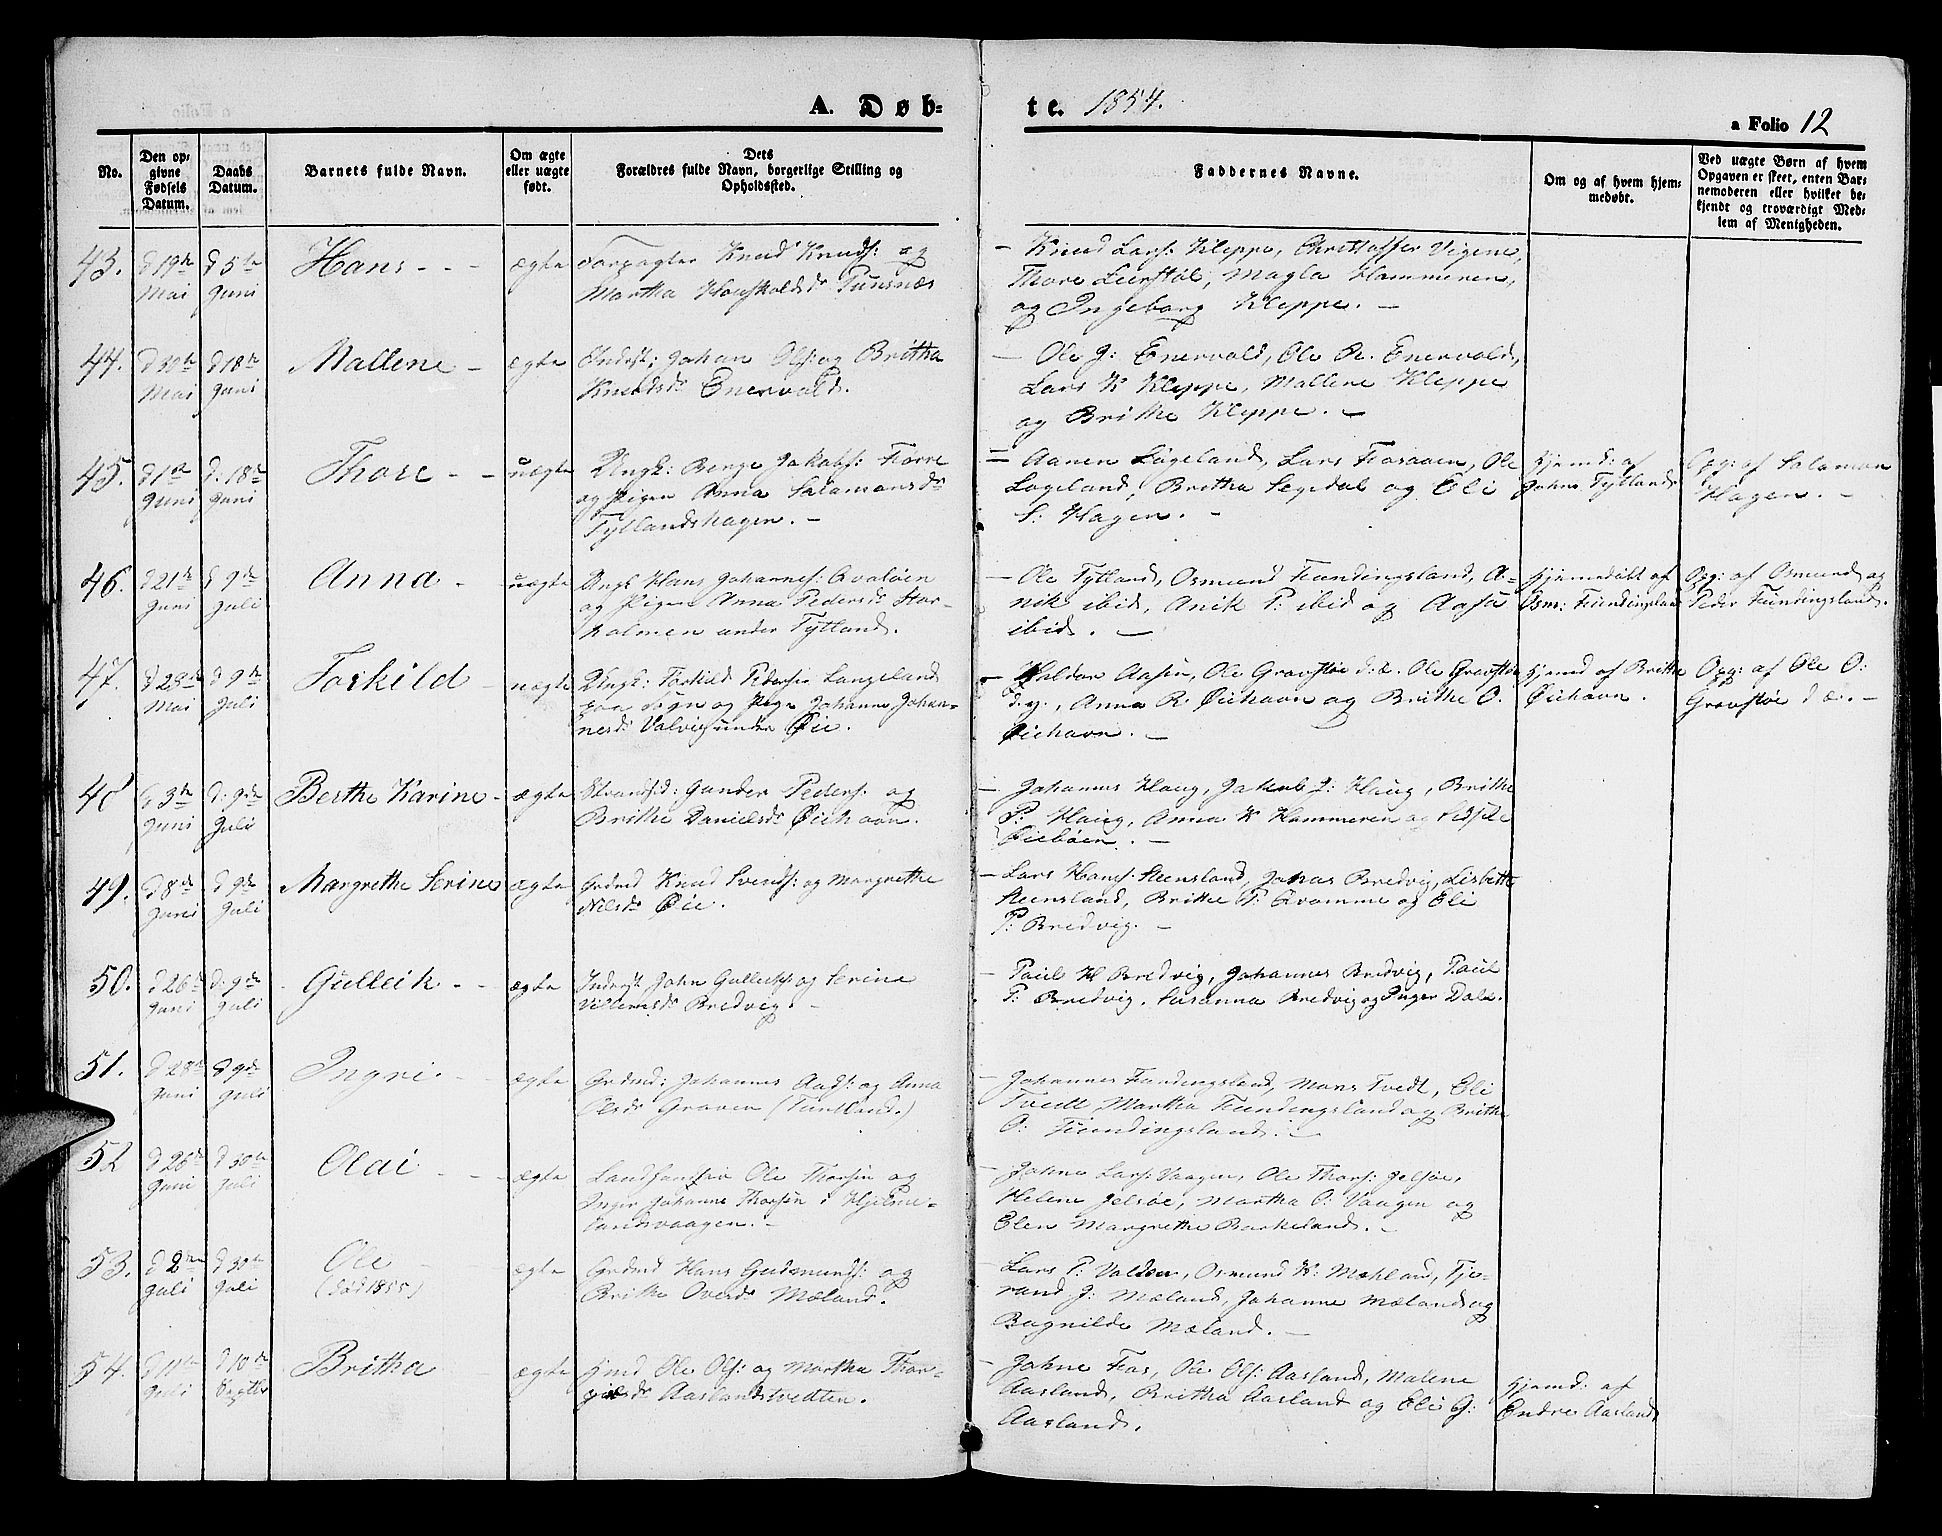 A. Døb-
te. 1854.
a Folio 12
No.
Den op-
givne
Fødsels
Datum.
Daabs
Datum.
Barnets fulde Navn.
Om ægte
eller uægte
født.
Dets
Forældres fulde Navn, borgerlige Stilling og
Opholdssted.
Faddernes Navne.
Om og af hvem hjem-
medøbt.
Ved uægte Børn af hvem
Opgaven er skeet, enten Bar-
nemoderen eller hvilket be-
kjendt og troværdigt Med-
lem af Menigheden.
43.
d 19de
Mai
d 5te
Juni
Hans - - -
ægte
Forpagter Knud Knuds: og
Martha
- Knud Lars: Kleppe, Christoffer Vigene,
Thore Leirstøl, Magla Hammeren,
og Ingeborg Kleppe. -
44.
d 30te
Mai
d 18de
Juni
Mallene -
ægte
Inderst: Johan Ols: og Britha
Knudsd: Enervold.
- Ole J: Enervold, Ole R. Enervold,
Lars K Kleppe, Mallene Kleppe
og Brithe Kleppe. -
45.
d 1ste
Juni
d. 18de
Juni
Thore - -
uægte
Ungk: Børge Jakobs: Førre
og Pigen Anna Salamonsd:
Tytlandshagen. -
= Aanen Løgeland, Lars Fosaaen, Ole
Løgeland, Britha Segedal og Eli
S: Hagen. -
Hjemd: af
Johne Tytland
Opg: af Salamon
Hagen. -
46.
d 21de
Juni
d 9de
Juli
Anna -
uægte
Ungk Hans Johannes: Qvaløen
og Pigen Anna Pedersd: Stor-
holmen under Tytland.
- Ole Tytland, Osmund Fundingsland, A-
nik ibid, Anik P: ibid og Aasa
ibid. -
Hjemmedøbt af
Osm: Fundingsland
Opg: af Osmund og
Peder Fundingsland.
47.
d 23de
Mai
d 9de
Juli
Torkild -
uægte
Ungk: Torkild Pedersen Langeland
fra Sogn og Pige Johanne Johan-
nesd: Valvig under Øie.
- Haldor Aasen, Ole Gravstøe d: æ. Ole Gravstøe
d. y., Anna R. Øiehavn og Brithe O.
Øiehavn. -
Hjemd af Brithe
Øiehavn.
Opg: af Ole O:
Gravstøe d æ. -
48
d 3de
Juni
d. 9de
Juli
Berthe Karine -
ægte
Strands: Gunder Peders: og
Brithe Danielsd: Øiehavn.
- Johannes Haug, Jakob L: Haug, Brithe
P: Haug, Anna K Hammeren og
Øiebøen. -
49.
d 8de
Juni
d 9de
Juli
Margrethe Serine
ægte
Grdmd Knud Svends: og Margrethe
Nilsd: Øie.
- Lars Hans: Steensland, Jonas Bredvig, Lisbeth
Steensland, Brithe T: Qvamme og Eli
P: Bredvig. -
50.
d 26de
Juni
d. 9de
Juli
Gulleik - -
ægte
Inderst John Gulleiks: og Serine
Villumsd: Bredvig. -
- Paul H Bredvig, Johannes Bredvig, Paul
P: Bredvig, Susanna Bredvig og Inger Dale.
51.
d 28de
Juni
d 9de
Juli
Ingri. -
ægte
Grdmd: Johannes Aads: og Anna
Olsd: Graven (Tuntland.)
- Johannes Fundingsland, Mons Tvedt, Eli
Tvedt Martha Fundingsland og Brithe
O: Fundingsland. -
52
d 26de
Juni
d 30te
Juli
Olai - -
ægte
Landhandler Ole Thorsen og
Inger Johanne Thorsen i Hjelme-
landsvaagen. -
- Johne Lars: Vaagen, Ole Thors: Jelsøe,
Helene Jelsøe, Martha O: Vaagen og
Elen Margrethe Barkeland. -
53.
d 2den
Juli
d 30te
Juli
Ole -
(død 1855)
ægte
Grdmd Hans Gudmunds: og
Brithe Oversd: Mæland.
- Lars P: Valden, Osmund K: Mæhland, Tjo-
rand J: Mæland, Johanne Mæland og
Ragnilde Mæland. -
54.
d 11te
Juli
d 10de
Septbr
Britha
ægte
Hmd Ole Ols: og Martha Thor-
gilsd: Aaslandstvedten.
- Johne Fos, Ole Ols: Aasland, Malene
Aasland, Britha Aasland og Eli G:
Aasland.
Hjemd: af
Endre Aasland